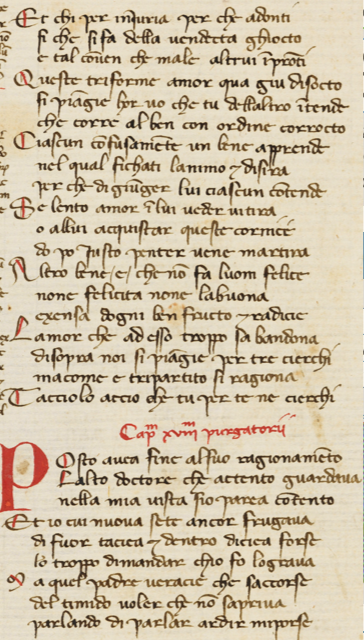 Et chi per iniuria per che adonti
si che si fa della vendetta ghiocto
e tal conven che male altrui impronti
Queste triforme amor qua giu disocto
si piagie hor vo che tu dellaltro intende
che corre al ben con ordine corrocto
Ciascun confusamente un bene apprende
nel qual si chati lanimo ⁊ disira
per che di giunger lui ciascun contende
Se lento amor in lui veder vi tira
o allui acquistar queste cornicie
do po iusto penter vene martira
Altro bene /e/ che non fa luom felice
none felicita none la buona
exensa dogni ben fructo ⁊ radicie
Lamor che ad esso troppo sa bandona
disopra noi si piagie per tre cierchi
ma come e tripartito si ragiona
Tacciolo accio che tu per te ne cierchi
Capm xviiim purgatorii
Posto avea fine al suo ragionamento
Lalto doctore che attento guardava
nella mia vista sio parea contento
Et io cui nuova sete ancor frugava
di fuor tacea ⁊ dentro dicea forse
lo troppo dimandar chio fo lo grava
Ma quel padre veracie che saccorse
del timido voler che non sapriva
parlando di parlar ardir mi porse